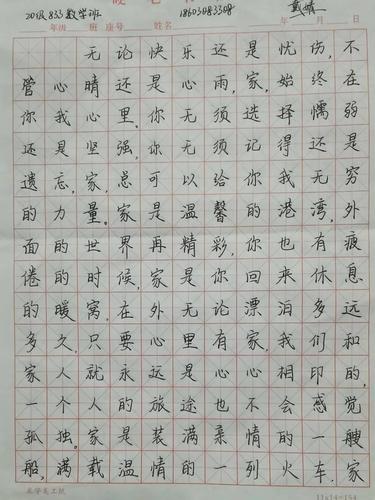 硬笔书
20级833数学班 18603083308 戴婧
年级 班 座号 姓名 年 月 日
无论快乐还是忧伤,不
管心晴还是心雨,家,始终在
你我心里,你无须选择懦弱
还是坚强,你无须记得还是
遗忘,家,总可以给你我无穷
的力量。家是温馨的港湾,外
面的世界再精彩,你也有疲
倦的时候,家是你回来休息
的暖窝,在外无论漂泊多远
多久,只要心里有家,我们和
家人就永远是心心相印的,
一个人的旅途也不会感觉
孤独。家是装满柔情的一艘
船,满载温情的一列火车,家
11x14=154